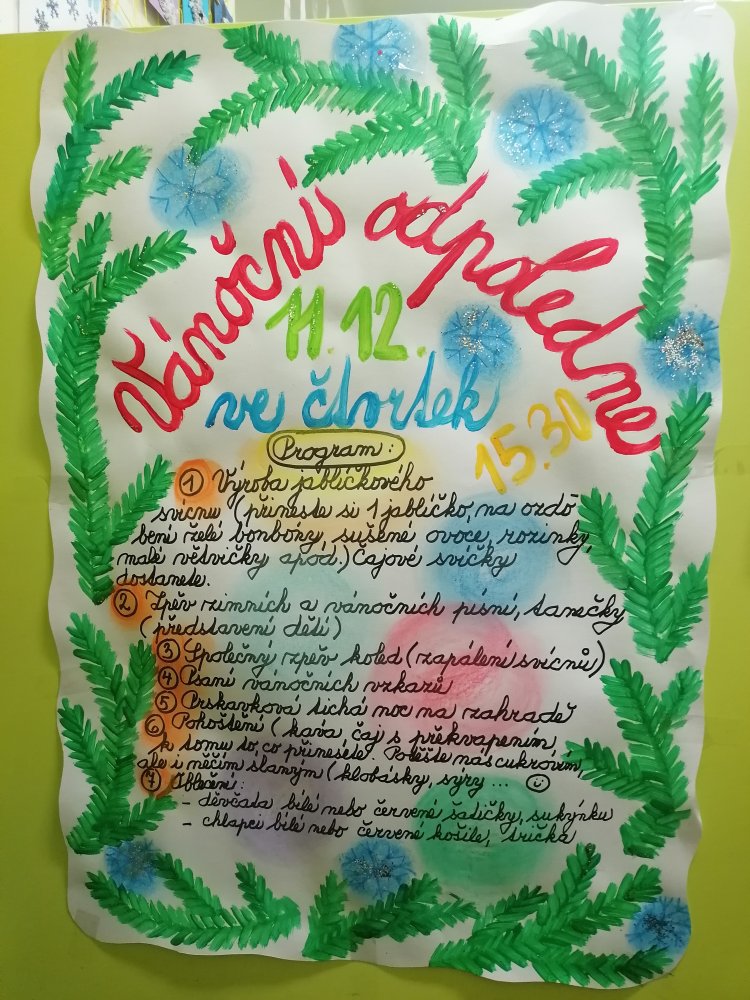 Vánoční odpoledne
11.12.
ve čtvrtek
15.30
Program:
1 Výroba jablíčkového
svícnu (přineste si 1 jablíčko, na ozdo
bení želé bonbóny, sušené ovoce, rozinky,
malé větvičky apod.) Čajové svíčky
dostanete.
2 Zpěv zimních a vánočních písní, tanečky
(představení dětí)
3 Společný zpěv koled (zapálení svícnů)
4 Psaní vánočních vzkazů
5 Prskavková tichá noc na zahradě
6 Pohoštění (káva, čaj s překvapením,
k tomu to, co přinesete. Potěšte nás cukrovím,
ale i něčím slaným (klobásky, sýry ... ☺
7 Oblečení:
- děvčada bílé nebo červené šatičky, sukýnku
- chlapci bílé nebo červené košile, trička